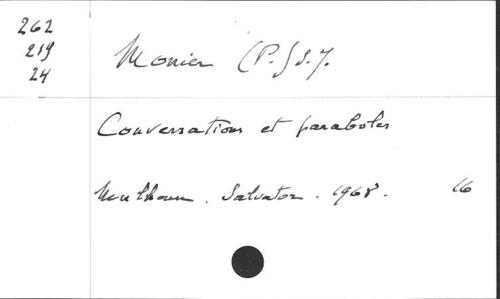 262
219
24
Monier (P.) s.j.
Conversations et paraboles
Mulhouse. Salvator. 1968. 16